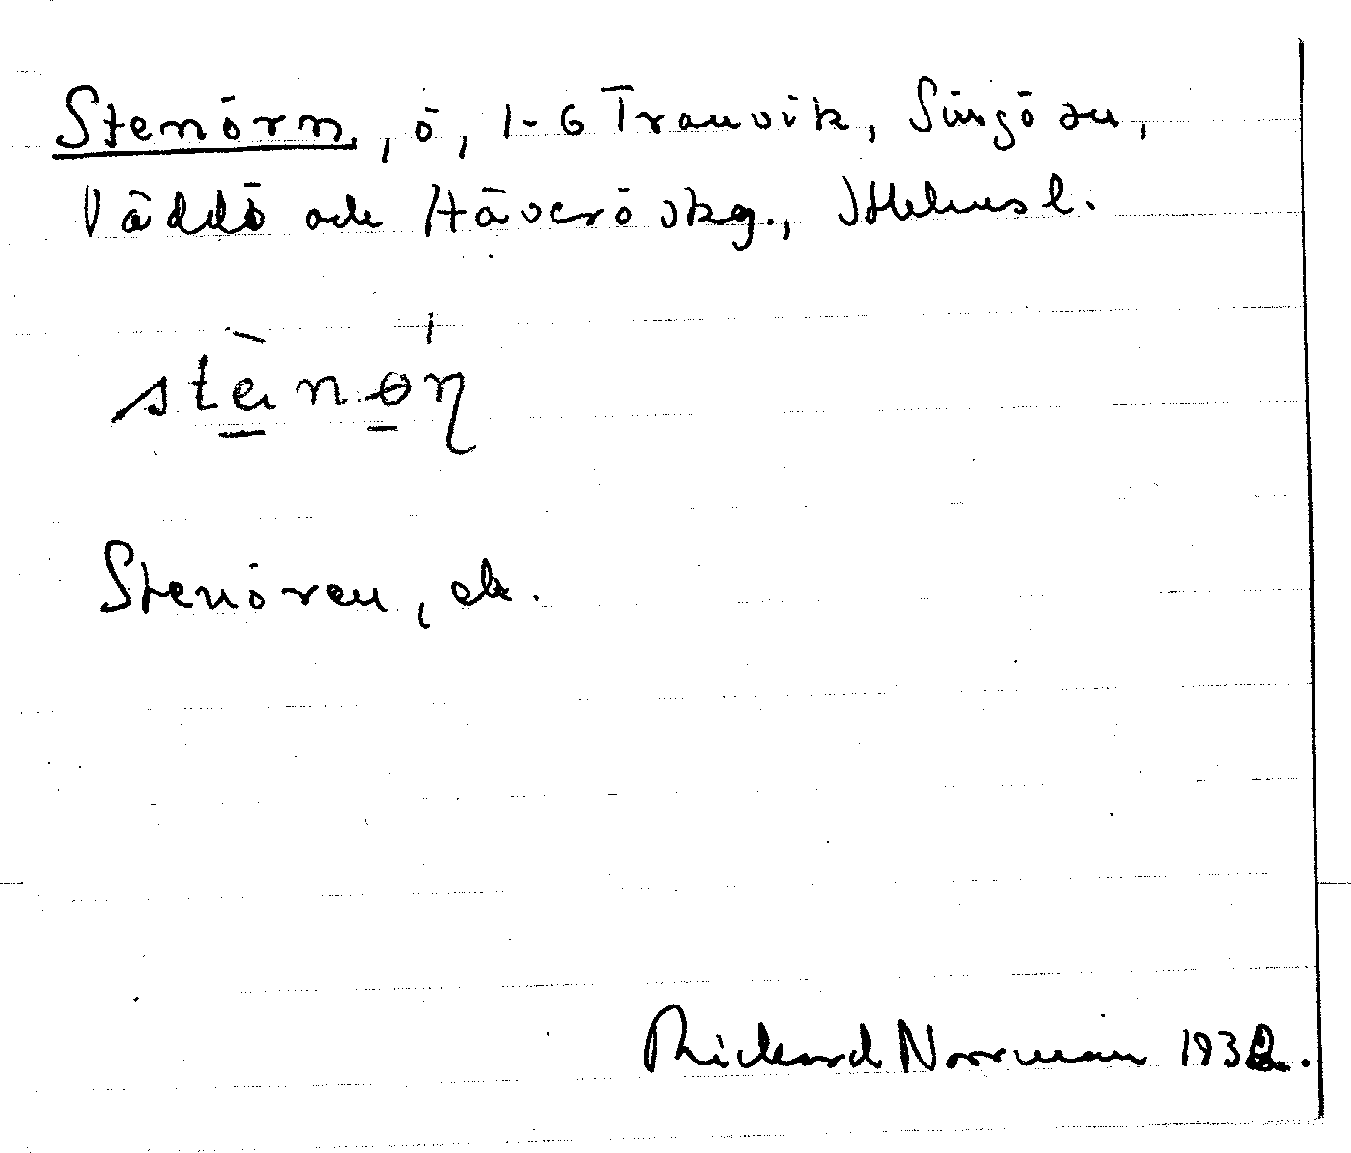 Stenörn, ö, 1-6 Tranvik, Singö sn,
Väddö och Häverö skg., Sthlms l.
stènøn
Stenören, ek.
Rickard Norrman 1932.